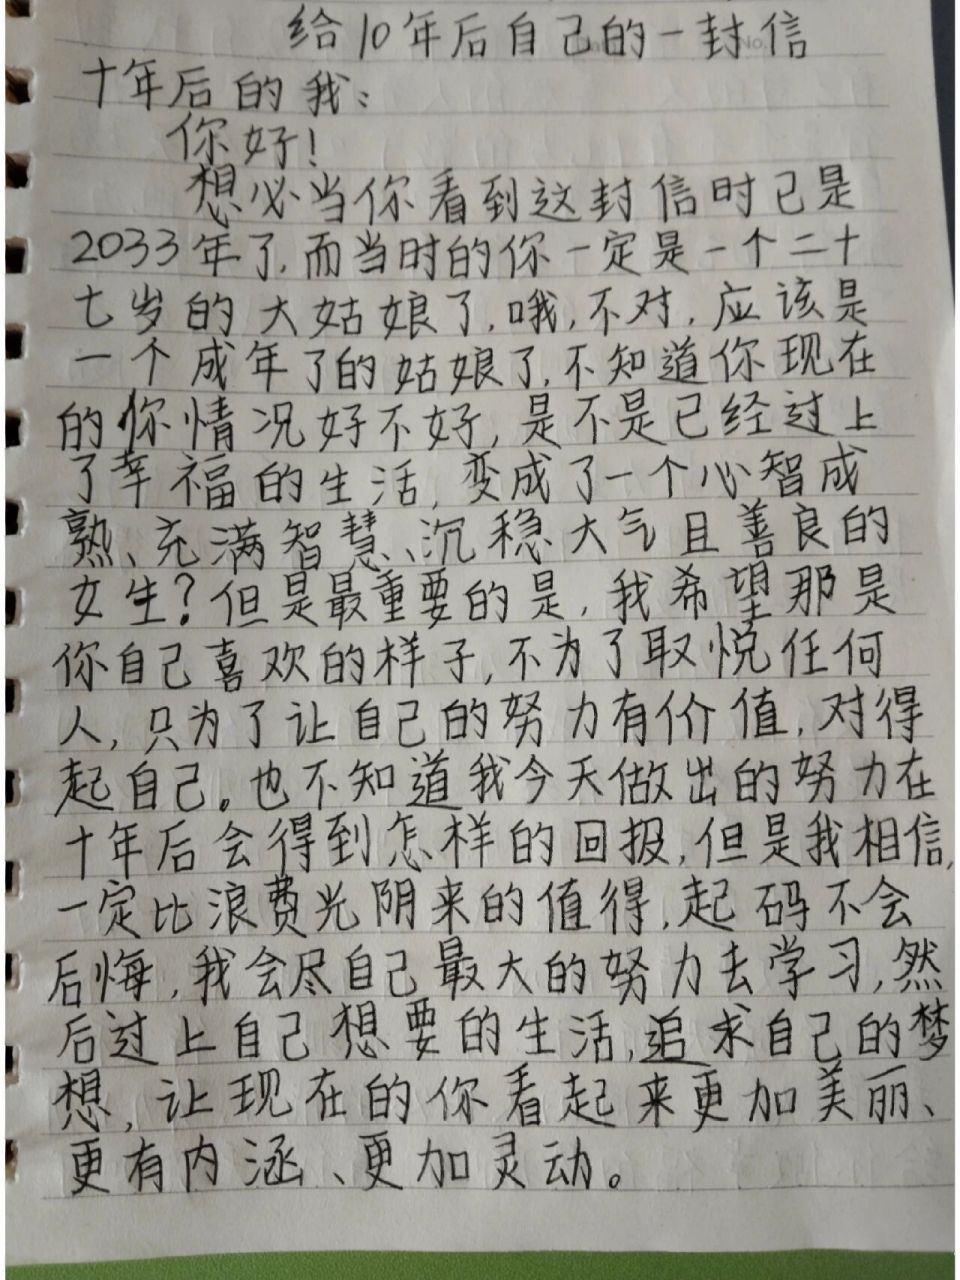 给10年后自己的一封信
十年后的我:
你好!
想必当你看到这封信时已是
2033年了,而当时的你一定是一个二十
七岁的大姑娘了,哦,不对,应该是
一个成年了的姑娘了,不知道你现在
的你情况好不好,是不是已经过上
了幸福的生活,变成了一个心智成
熟、充满智慧、沉稳大气且善良的
女生?但是最重要的是,我希望那是
你自己喜欢的样子,不为了取悦任何
人,只为了让自己的努力有价值,对得
起自己。也不知道我今天做出的努力在
十年后会得到怎样的回报,但是我相信,
一定比浪费光阴来的值得,起码不会
后悔,我会尽自己最大的努力去学习,然
后过上自己想要的生活,追求自己的梦
想,让现在的你看起来更加美丽、
更有内涵、更加灵动。